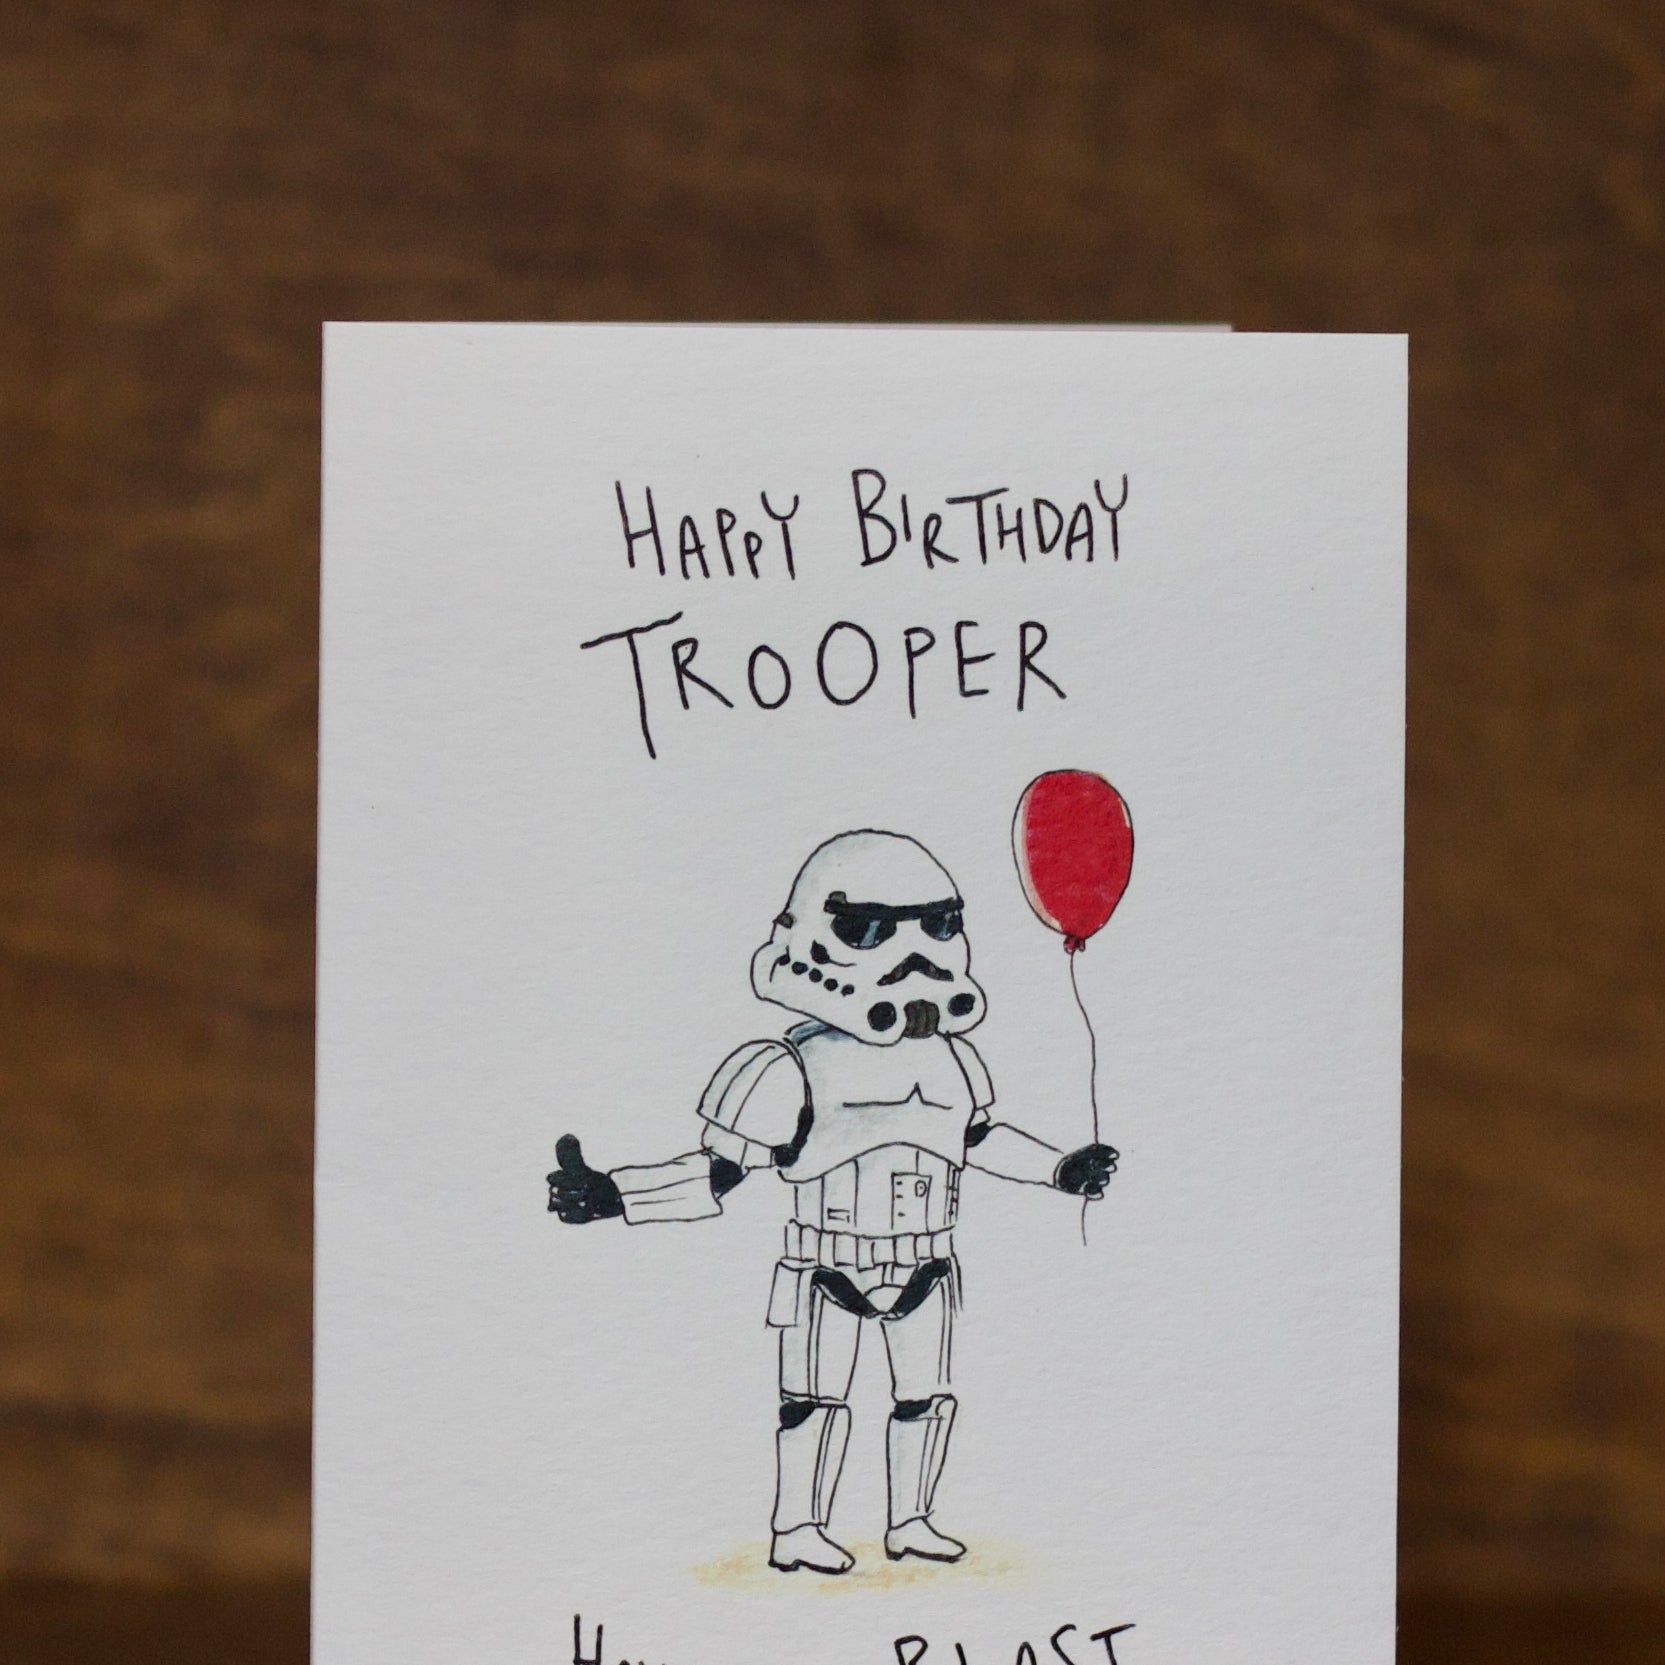 HAPPY BIRTHDAY
TROOPER
BLAST